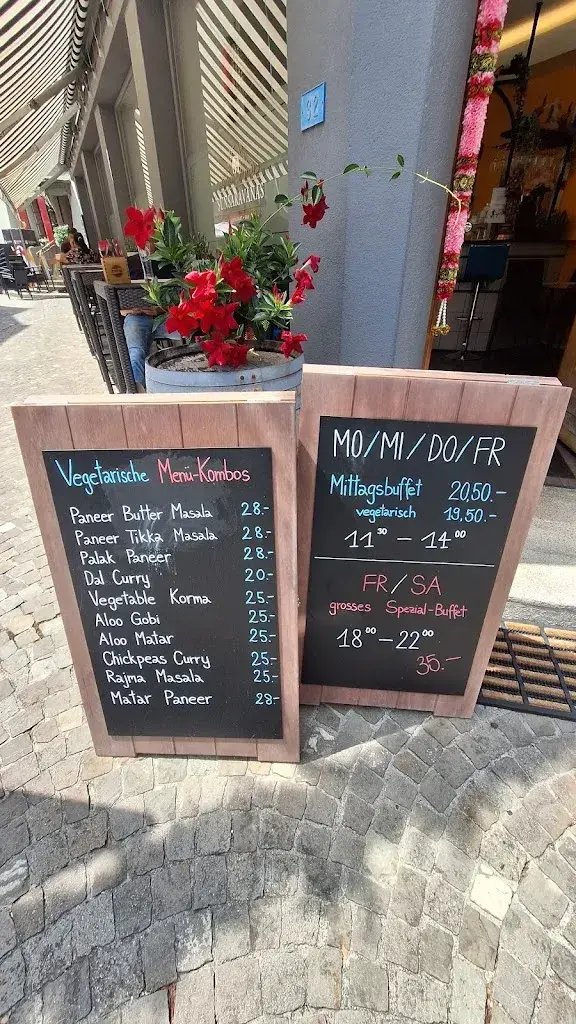 92
Vegetarische Menü-Kombos
Paneer Butter Masala 28.-
Paneer Tikka Masala 28.-
Palak Paneer 28.-
Dal Curry 20.-
Vegetable Korma 25.-
Aloo Gobi 25.-
Aloo Matar 25.-
Chickpeas Curry 25.-
Rajma Masala 25.-
Matar Paneer 28.-
MO/MI/DO/FR
Mittagsbuffet 20.50.-
vegetarisch 19.50.-
11³⁰ – 14⁰⁰
FR/SA
grosses Spezial-Buffet
18⁰⁰ – 22⁰⁰
35.–